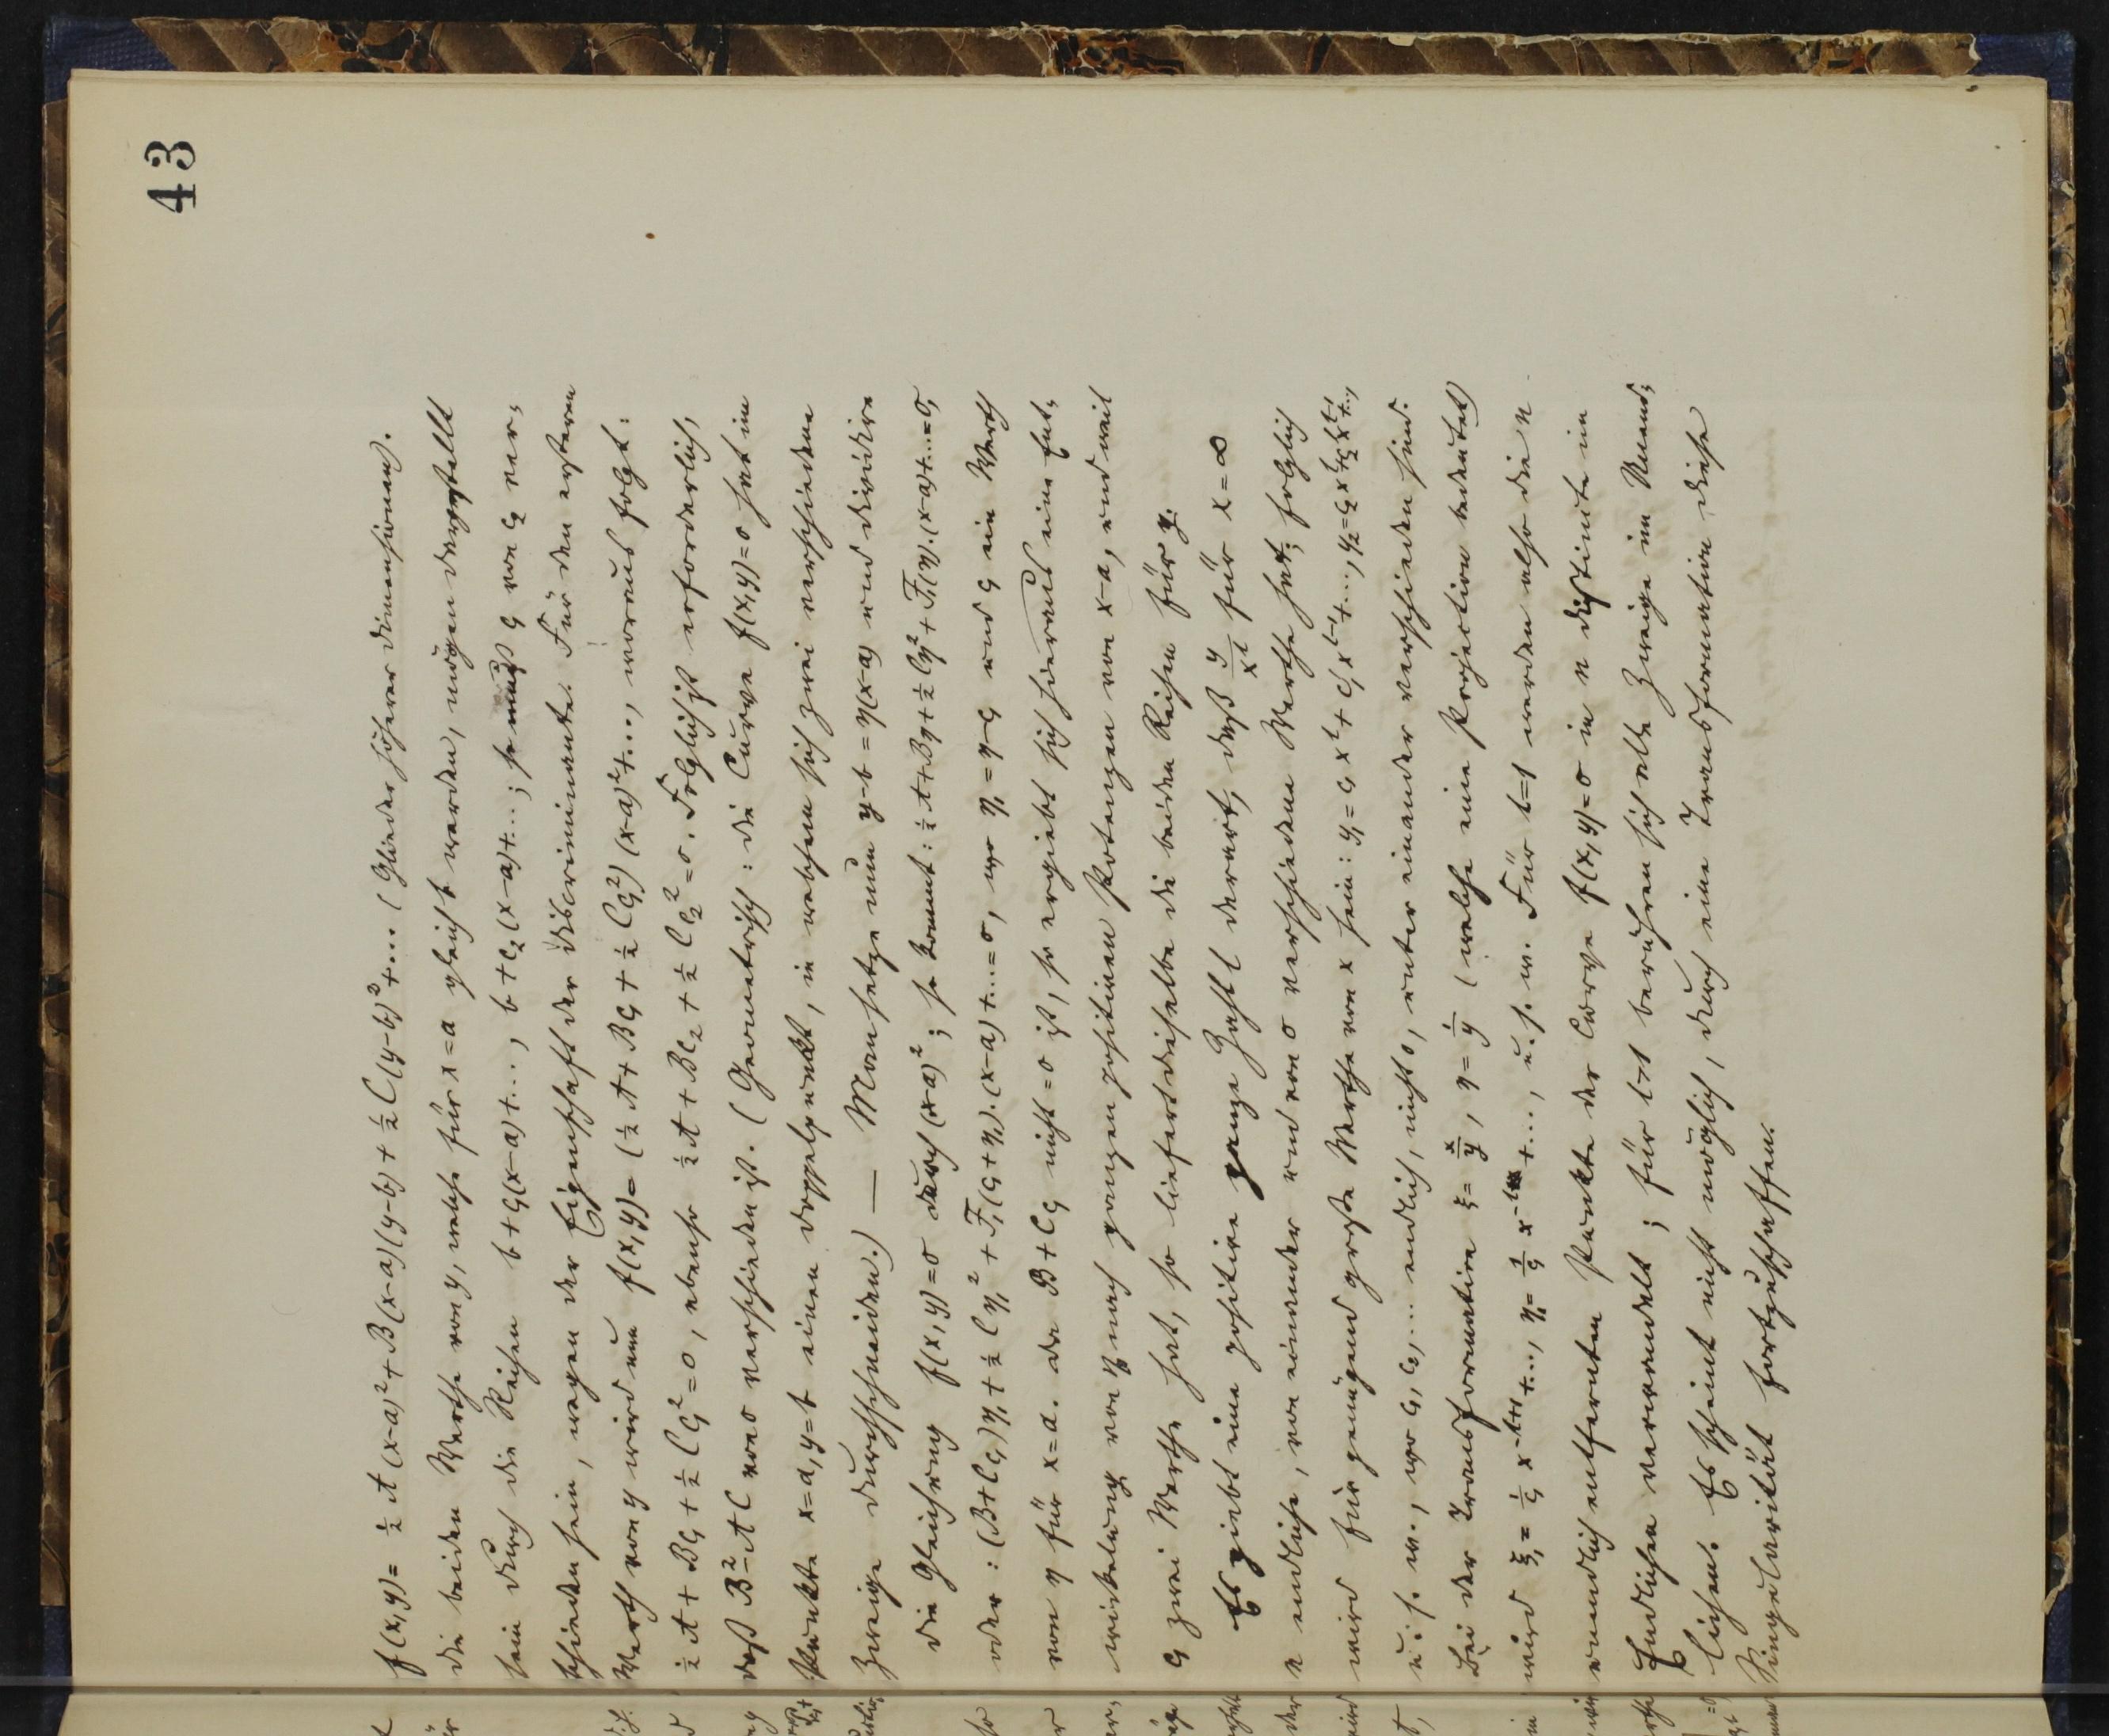 43
f(x,y) = ½A(x-a)²+B(x-a)(y-b)+½C(y-b)²+.... (Glieder höherer Dimensionen).
die beiden Werthe von y, welche für x=a gleich b werden, mögen dargestellt
sein durch die Reihen b+c₁(x-a)+..., b+c₂(x-a)+...; so muß c₁ von c₂ ver-
schieden sein, wegen der Eigenschaft der Discriminante. Für den ersteren
Werth von y wird nun f(x,y) = (½A+Bc₁+½Cc₁²)(x-a)²+..., woraus folgt:
½A+Bc₁+½Cc₁²=0, ebenso ½A+Bc₂+½Cc₂²=0. Folglich ist erforderlich,
daß B²-AC von 0 verschieden ist. (Geometrisch: die Curve f(x,y)=0 hat im
Punkte x=a, y=b einen Doppelpunkt, in welchem sich zwei verschiedene
Zweige durchschneiden.) — Man setze nun y-b=η(x-a) und dividire
die Gleichung f(x,y)=0 durch (x-a)²; so kommt: ½A+Bη+½Cη²+F₁(η).(x-a)+...=0,
oder: (B+Cc₁)η₁+½Cη₁²+F₁(c₁+η₁).(x-a)+...=0, wo η₁=η-c₁ und c₁ ein Werth
von η für x=a. da B+Cc₁ nicht =0 ist, so ergiebt sich hieraus eine Ent-
wickelung von η nach ganzen positiven Potenzen von x-a, und weil
c₁ zwei Werthe hat, so liefert dieselbe die beiden Reihen für y.
Es giebt eine positive ganze Zahl l derart, daß y/xˡ für x=∞
n endliche, von einander und von 0 verschiedene Werthe hat; folglich
wird für genügend große Werthe von x sein: y₁=c₁xˡ+c₁'xˡ⁻¹+..., y₂=c₂xˡ+c₂'xˡ⁻¹+...,
u. s. w., wo c₁, c₂,... endlich, nicht 0, unter einander verschieden sind.
Bei der Transformation ξ=x/y, η=1/y (welche eine Projection bedeutet)
wird ξ₁=1/c₁ x⁻ˡ⁺¹+..., η₁=1/c₁ x⁻ˡ+..., u. s. w. Für l=1 werden also die n
unendlich entfernten Punkte der Curve f(x,y)=0 in n distincte im
Endlichen verwandelt; für l>1 berühren sich alle Zweige im Unend-
lichen. Es scheint nicht möglich, durch eine Transformation diese
Singularität fortzuschaffen.